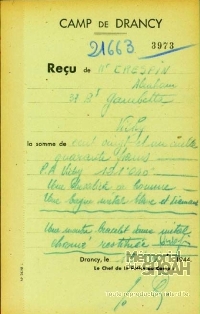 CAMP DE DRANCY
21663 3973
Reçu de Mr CRESPIN
Abraham
21 Bd Gambetta
Vichy
la somme de cent vingt et un mille
quarante francs
P.A. Vichy 121.040
Une
Une bague métal blanc et diamant
Une montre bracelet dame métal
chromé restituée
Drancy, le 1944
Le Chef de la Police du Camp
Mémorial
de la
SHOAH